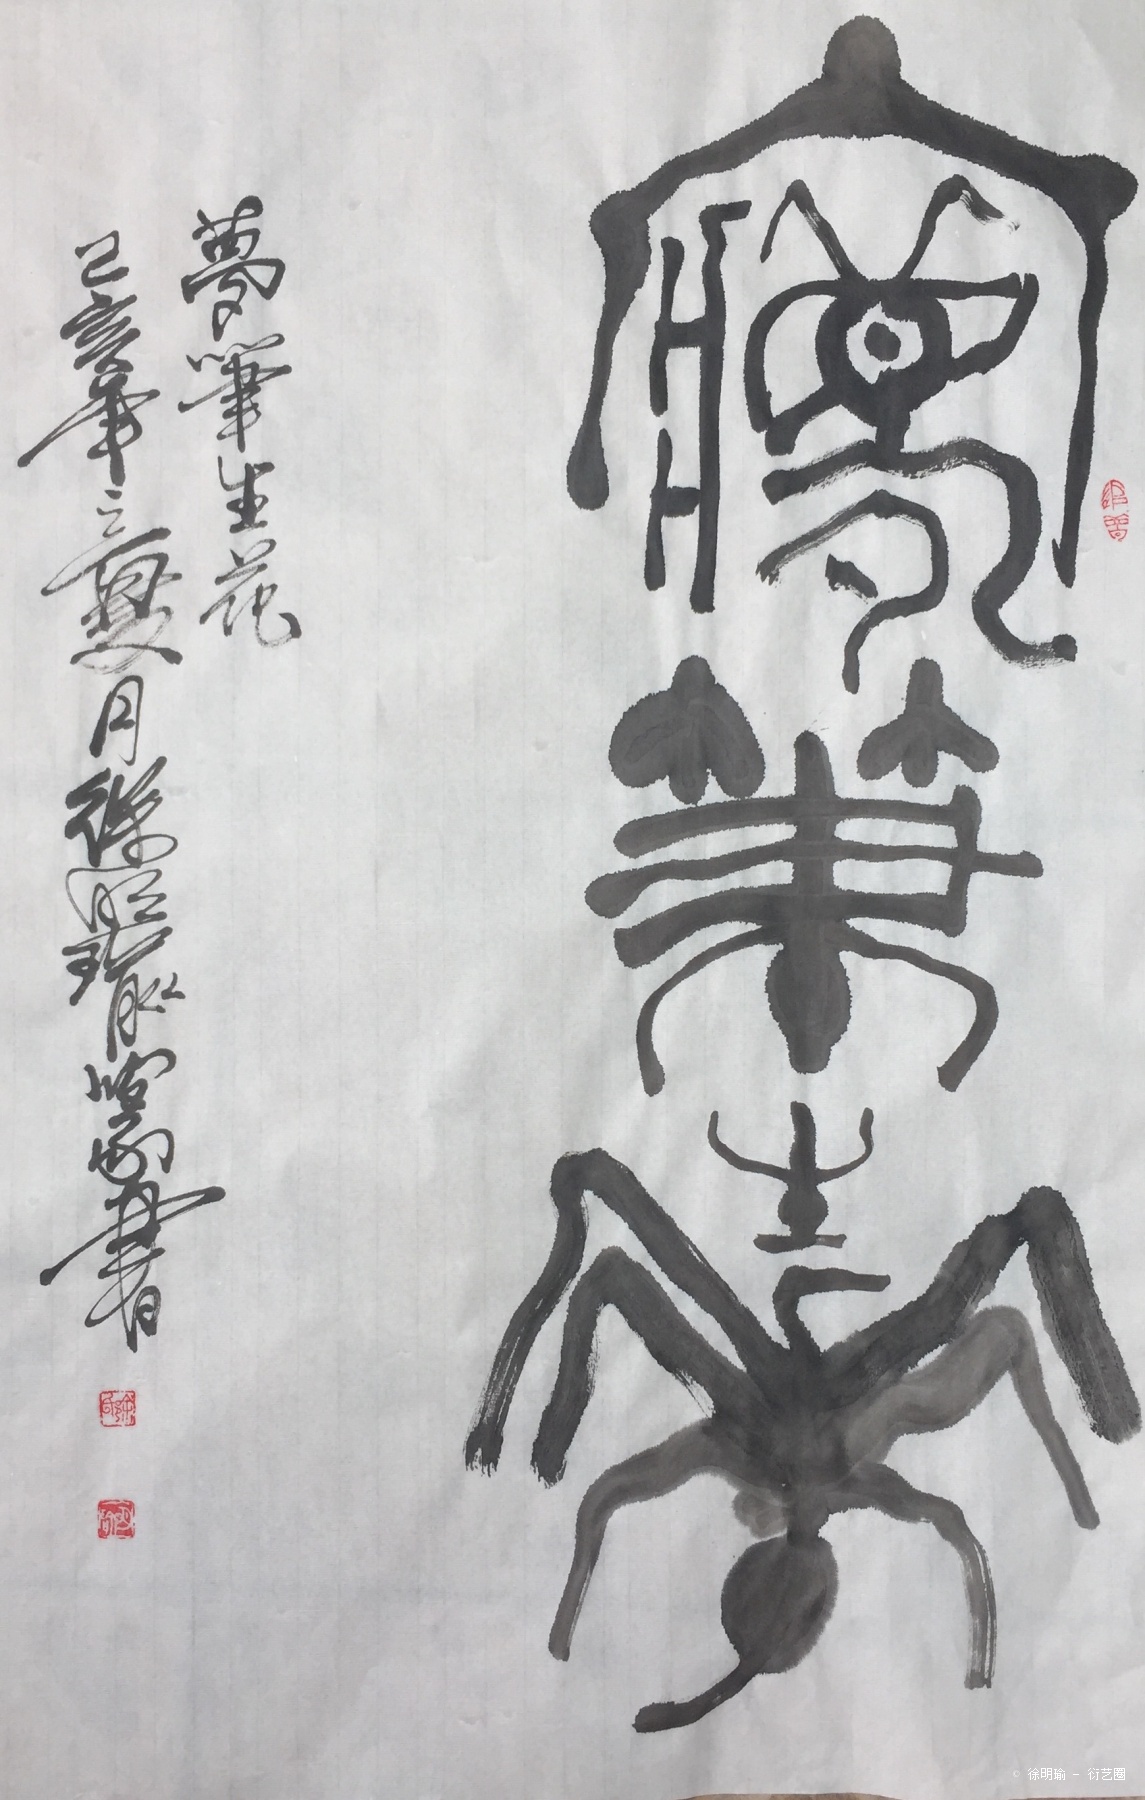 夢筆生花
夢筆生花
己亥年之夏月徐明瑜篆書
© 徐明瑜 - 衍艺圈